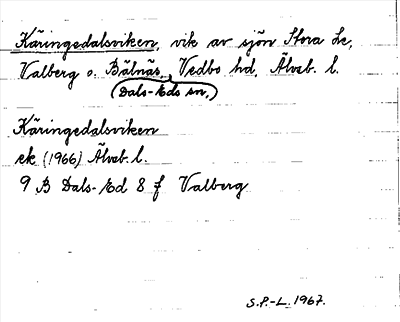 Käringedalsviken, vik av sjön Stora Le,
Valberg o. Bälnäs, Vedbo hd, Älvsb. l.
(Dals-Eds sn,)
Käringedalsviken
ek (1966) Älvsb. l.
9 B Dals-Ed 8 f Valberg
S.P.-L. 1967.